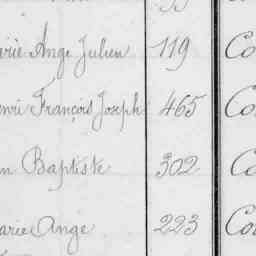 arie Ange Julien 119 Co
enri François Joseph 465 Co
n Baptiste 302 Co
arie Ange 223 Cou